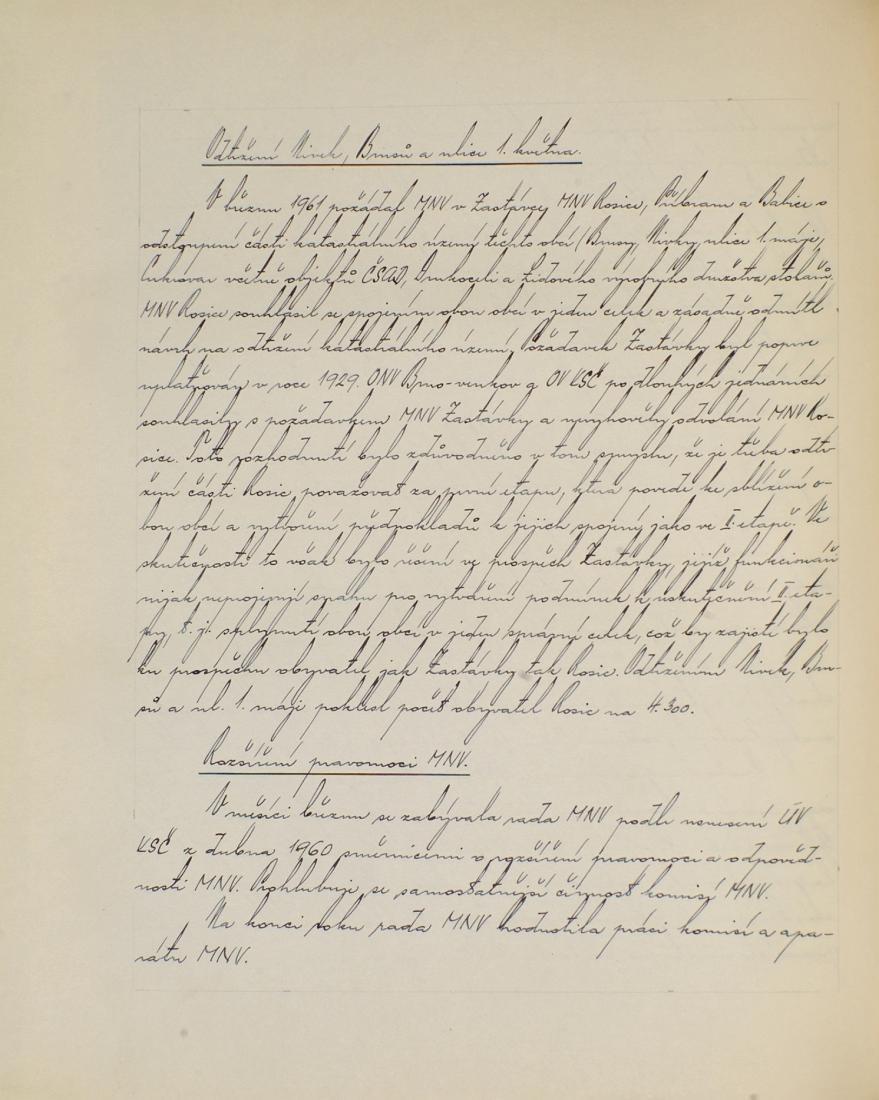 Odtržení Nivek, Brusů a ulice 1. května.
V březnu 1961 požádal MNV v Zastávce MNV Rosice, Příbram a Babice o
odstoupení části katastrálního území těchto obcí /Brusy, Nivky, ulice 1. máje,
Cukrovar včetně objektů ČSAD, a Lidového výrobního družstva stolařů.
MNV Rosice souhlasil se spojením obou obcí v jeden celek a zásadně odmítl
návrh na odtržení katastrálního území. Požadavek Zastávky byl poprve
uplatňován v roce 1929. ONV Brno-venkov a OV KSČ po dlouhých jednáních
souhlasily s požadavkem MNV Zastávky a nevyhověly odvolání MNV Ro-
sice. Toto rozhodnutí bylo zdůvodněno v tom smyslu, že je třeba odtr-
žení části Rosic považovat za první etapu, která povede ke sblížení o-
bou obcí a vytvoření předpokladů k jejich spojení, jako ve II. etapě. Ve
skutečnosti to však bylo řešení ve prospěch Zastávky, jejíž funkcionáři
nijak neprojevují snahu pro vytváření podmínek k uskutečnění II. eta-
py, t. j. splynutí obou obcí v jeden správní celek, což by zajisté bylo
ku prospěchu obyvatel jak Zastávky tak Rosic. Odtržením Nivek, Bru-
sů a ul. 1. máje poklesl počet obyvatel Rosic na 4.300.
Rozšíření pravomoci MNV.
V měsíci březnu se zabývala rada MNV podle usnesení ÚV
KSČ z dubna 1960 směrnicemi o rozšíření pravomoci a odpověd-
nosti MNV. Prohlubuje se samostatnější činnost komisí MNV.
Na konci roku rada MNV hodnotila práci komisí a apa-
rátu MNV.